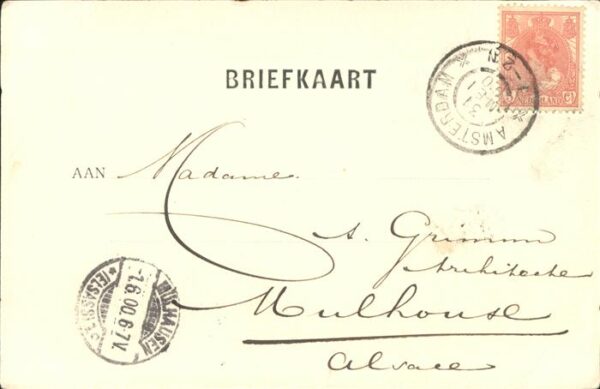 BRIEFKAART
AMSTERDAM
31
1-2 N
NEDERLAND
AAN Madame
A. Grimm
Architecte
Mulhouse
Alsace
MÜLHAUSEN
1.6.00.6-7V.
*(ELSASS)*